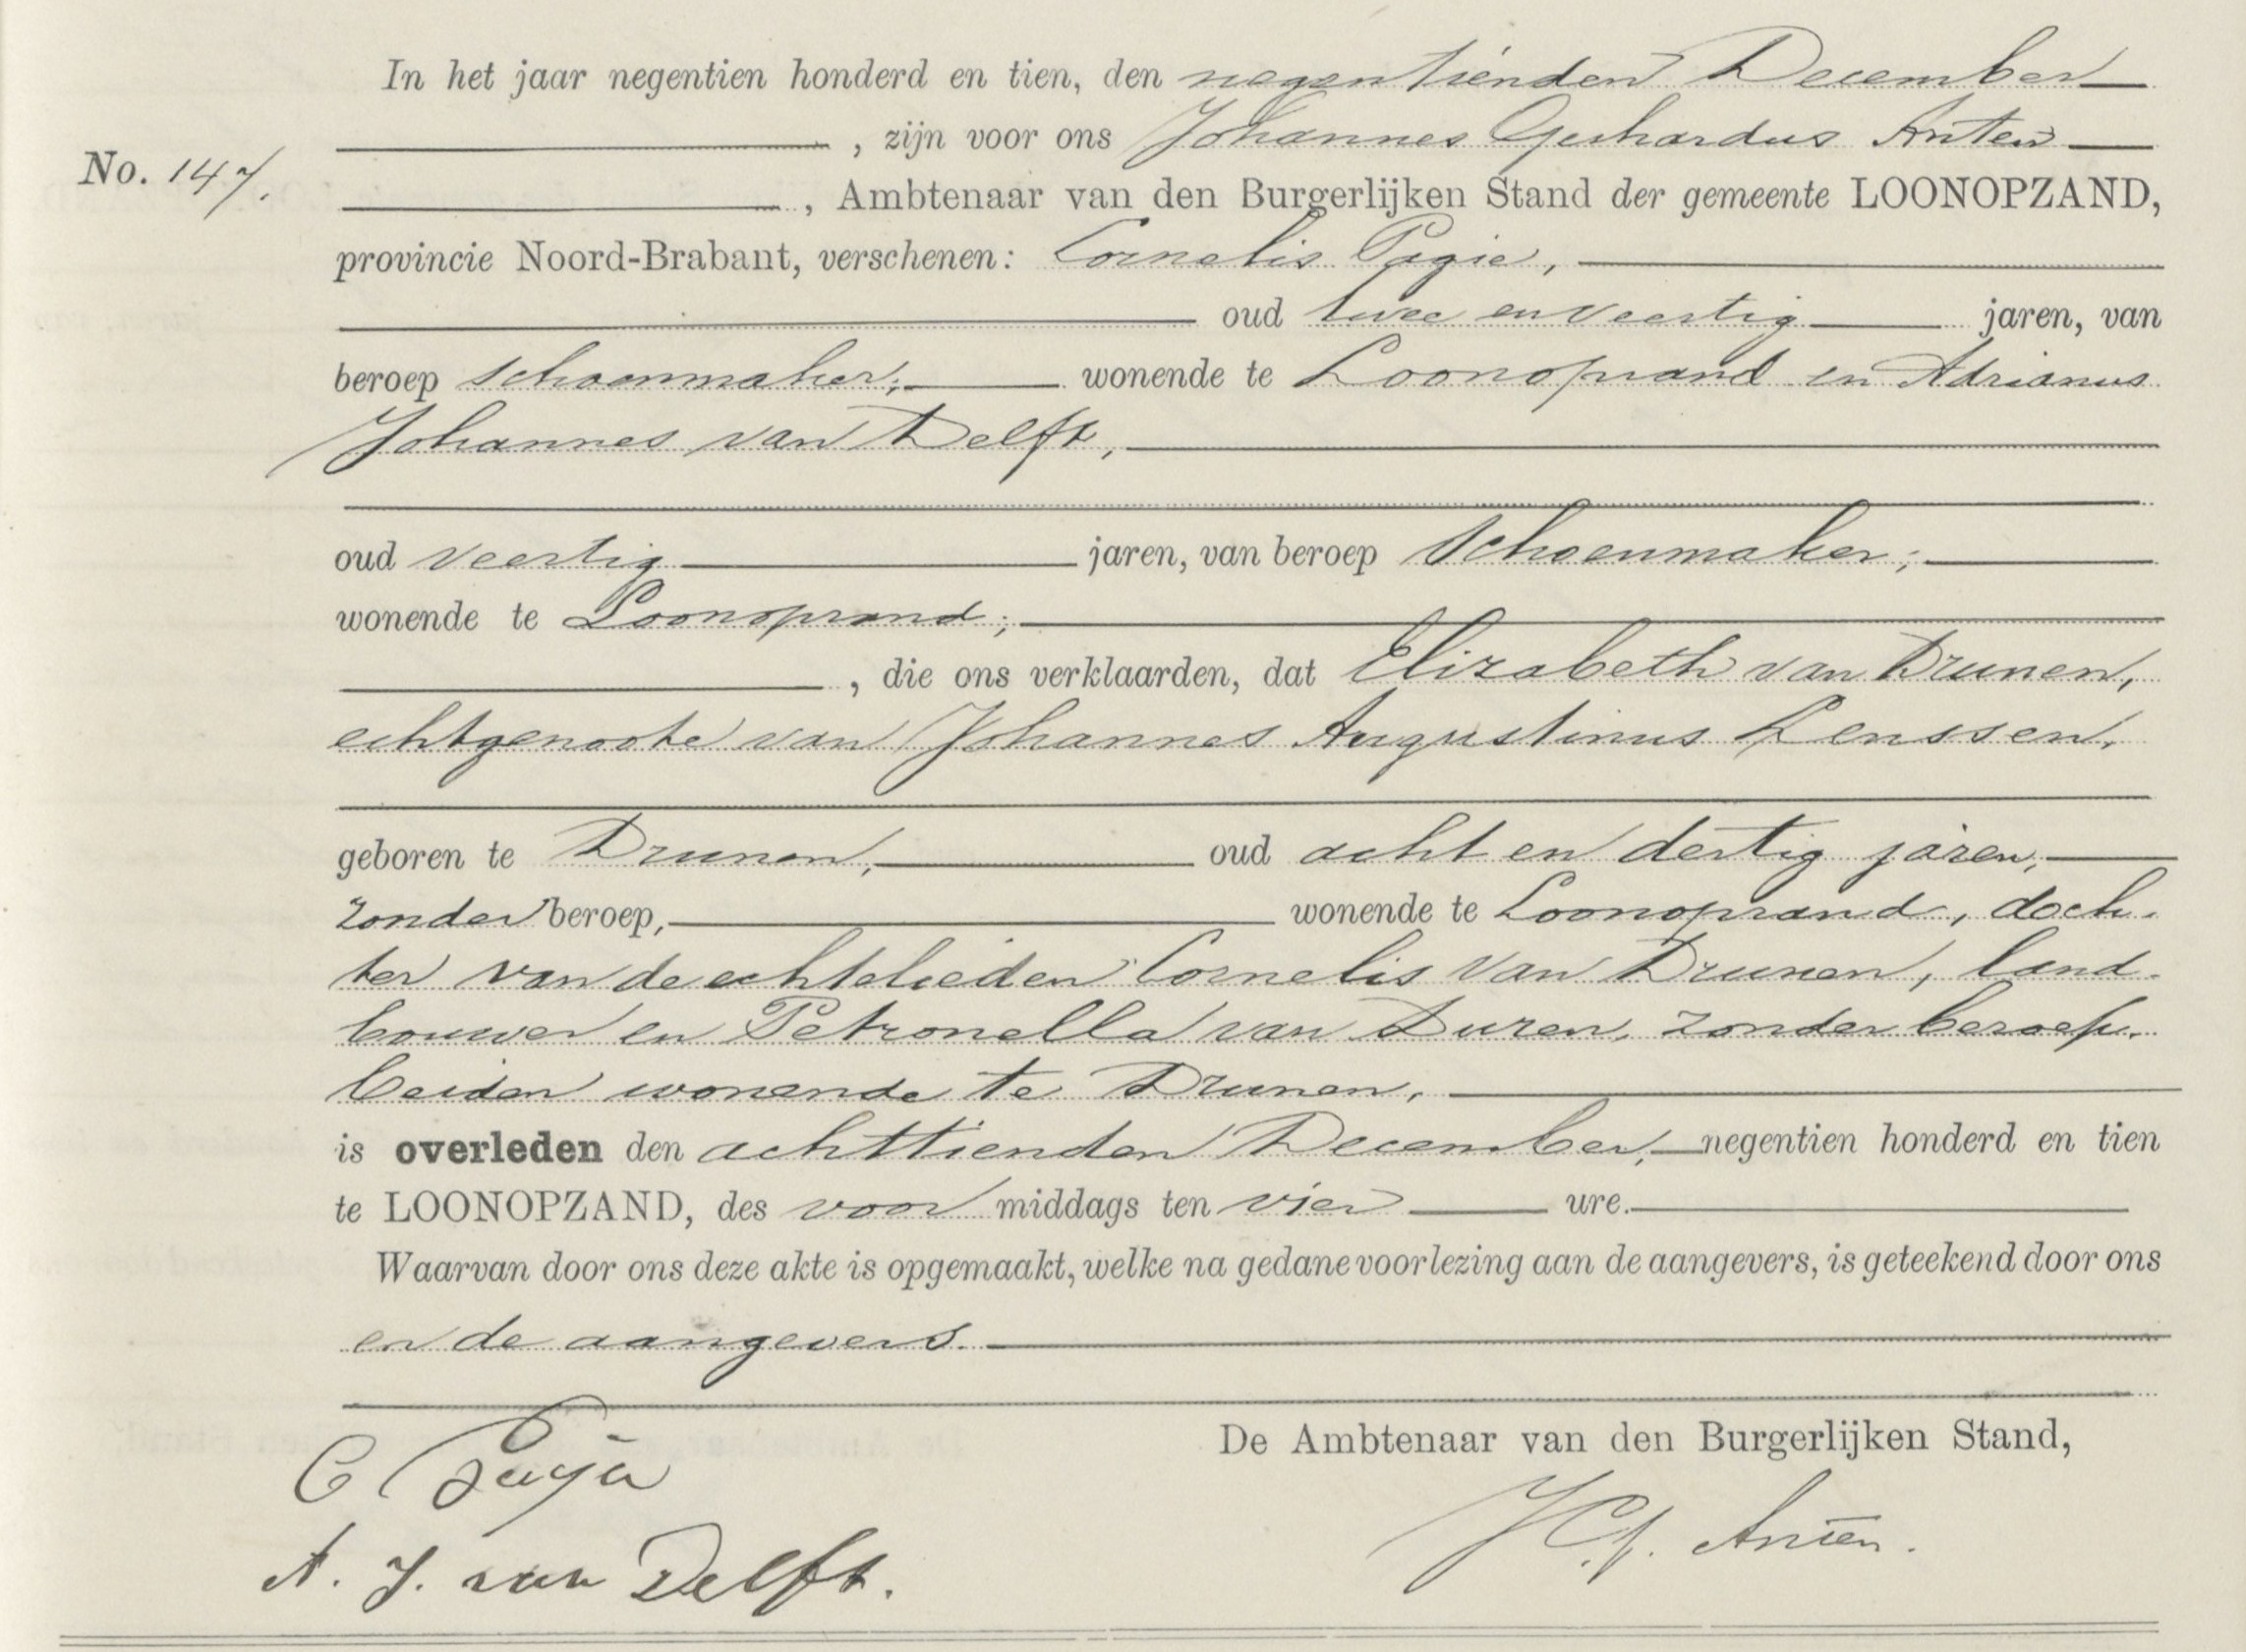 In het jaar negentien honderd en tien, den negentienden December
, zijn voor ons Johannes Gerhardus Anten
No. 147.
, Ambtenaar van den Burgerlijken Stand der gemeente LOONOPZAND,
provincie Noord-Brabant, verschenen: Cornelis Pagie,
oud twee en veertig jaren, van
beroep schoenmaker, wonende te Loonopzand en Adrianus
Johannes van Delft,
oud veertig jaren, van beroep Schoenmaker,
wonende te Loonopzand,
, die ons verklaarden, dat Elizabeth van Drunen,
echtgenoote van Johannes Augustinus Lenssen,
geboren te Drunen, oud acht en dertig jaren,
zonder beroep, wonende te Loonopzand, doch-
ter van de echtelieden Cornelis van Drunen, land-
bouwer en Petronella van Duren, zonder beroep,
beiden wonende te Drunen,
is overleden den achttienden December, negentien honderd en tien
te LOONOPZAND, des voor middags ten vier ure.
Waarvan door ons deze akte is opgemaakt, welke na gedane voorlezing aan de aangevers, is geteekend door ons
en de aangevers.
De Ambtenaar van den Burgerlijken Stand,
C
J G. Anten.
A. J. van Delft.